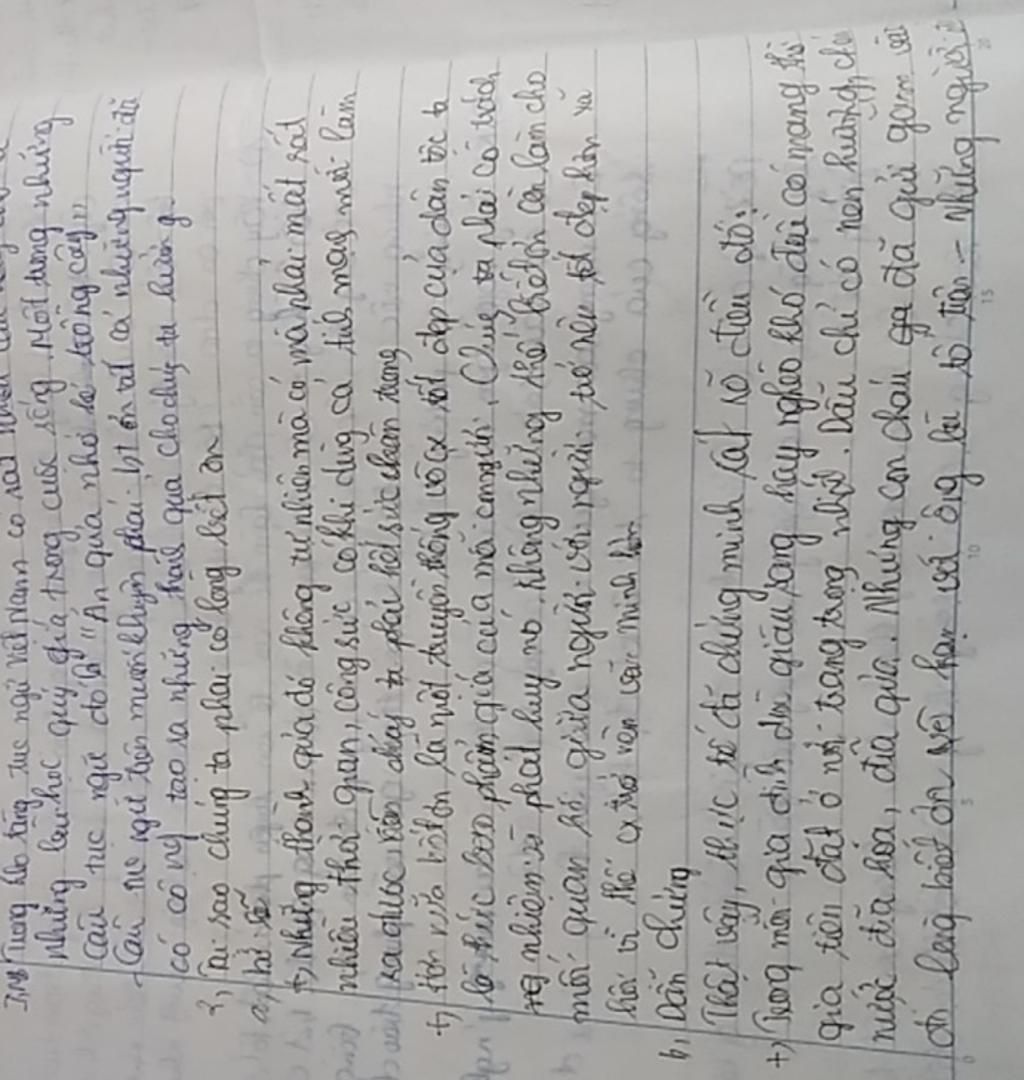 Trong kho tàng tục ngữ Việt Nam có rất nhiều câu
những bài học quý giá trong cuộc sống. Một trong những
câu tục ngữ đó là "Ăn quả nhớ kẻ trồng cây"
- Câu tục ngữ trên muốn khuyên phải bt ơn tất cả những người đã
có công tạo ra những thành quả cho chúng ta hưởng.
2, Tại sao chúng ta phải có lòng biết ơn
a, Lí lẽ
+, Những thành quả đó không tự nhiên mà có mà phải mất rất
nhiều thời gian, công sức có khi dùng cả tính mạng mới làm
ra được nên chúng ta phải hết sức chân trọng
+, lòng biết ơn là một truyền thống vô cx tốt đẹp của dân tộc ta
là thước đo phẩm giá của mỗi con người. Chúng ta phải có trách
nhiệm phát huy nó. Không những thế biết ơn còn làm cho
mối quan hệ giữa người với người trở nên tốt đẹp hơn xã
hội vì thế cx trở nên văn minh hơn
b, Dẫn chứng
Thật vậy, thực tế đã chứng minh rất rõ điều đó:
+, Trong mỗi gia đình dù giàu sang hay nghèo khó đều có mang thờ
gia tiên đặt ở nơi trang trọng nhất. Dẫu chỉ có nén hương, ché
nước đĩa hoa, đĩa quả. Những con cháu đã gửi gắm
ơn lòng biết ơn với ông bà tổ tiên - Những người